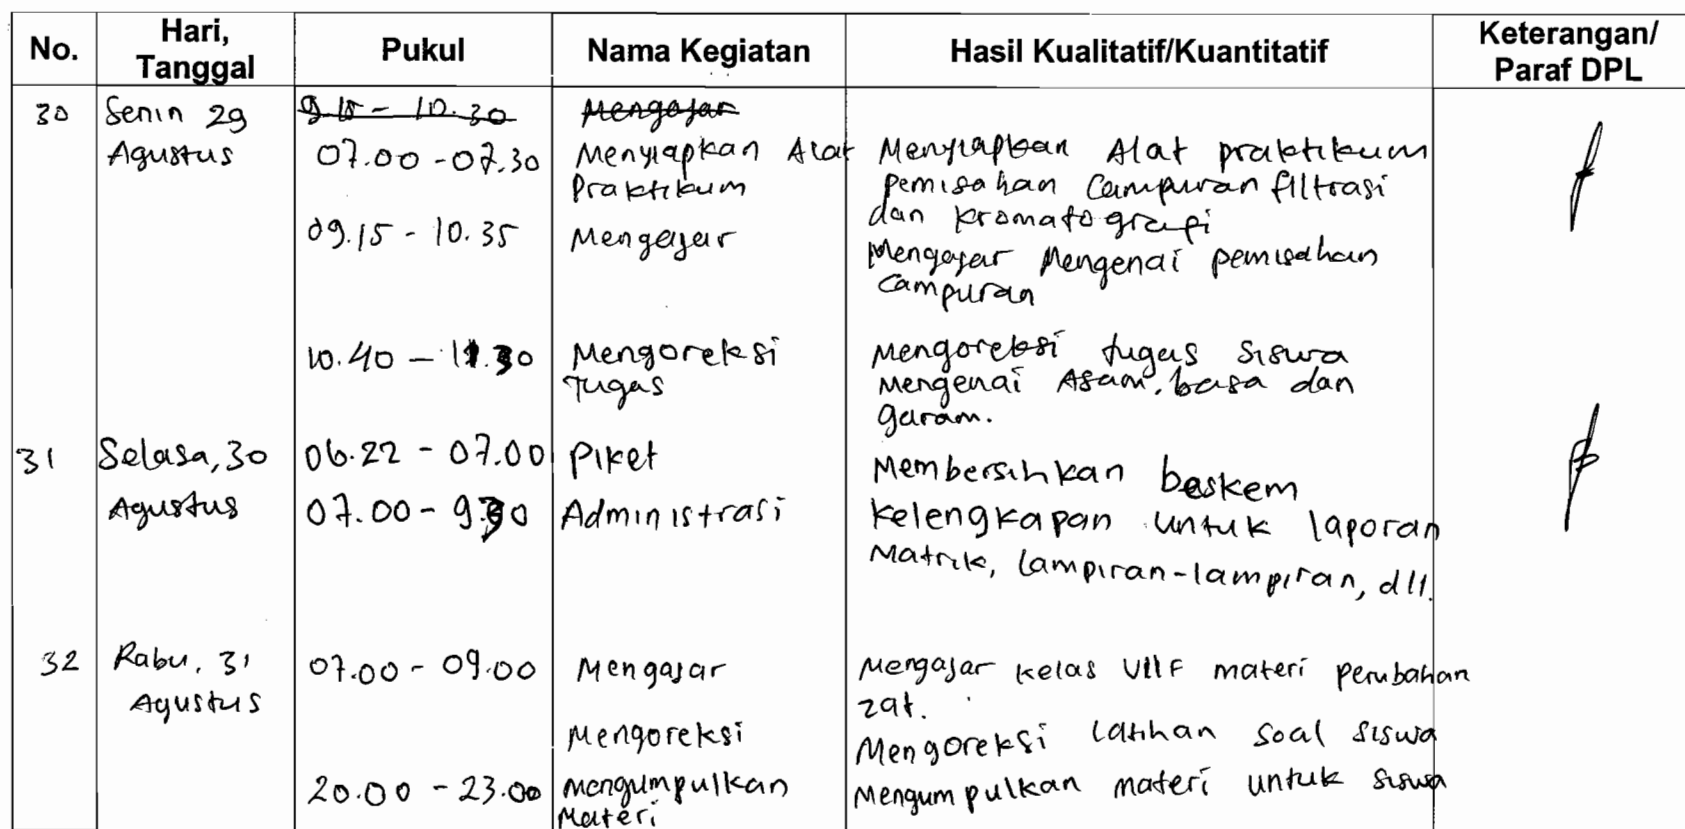 No. Hari, Tanggal Pukul Nama Kegiatan Hasil Kualitatif/Kuantitatif Keterangan/ Paraf DPL
30 Senin 29 9.15 - 10.30 Mengajar
Agustus 07.00 - 07.30 Menyiapkan Alat Menyiapkan Alat praktikum
Praktikum pemisahan Campuran filtrasi
dan kromatografi
09.15 - 10.35 Mengajar Mengajar Mengenai pemisahan
Campuran
10.40 - 11.30 Mengoreksi Mengoreksi tugas siswa
Tugas mengenai Asam, basa dan
garam.
31 Selasa, 30 06.22 - 07.00 Piket Membersihkan baskem
Agustus 07.00 - 9.30 Administrasi Kelengkapan untuk laporan
Matrik, lampiran-lampiran, dll.
32 Rabu, 31 07.00 - 09.00 Mengajar Mengajar kelas VIIF materi perubahan
Agustus zat.
Mengoreksi Mengoreksi latihan soal siswa
20.00 - 23.00 Mengumpulkan Mengumpulkan materi untuk siswa
Materi